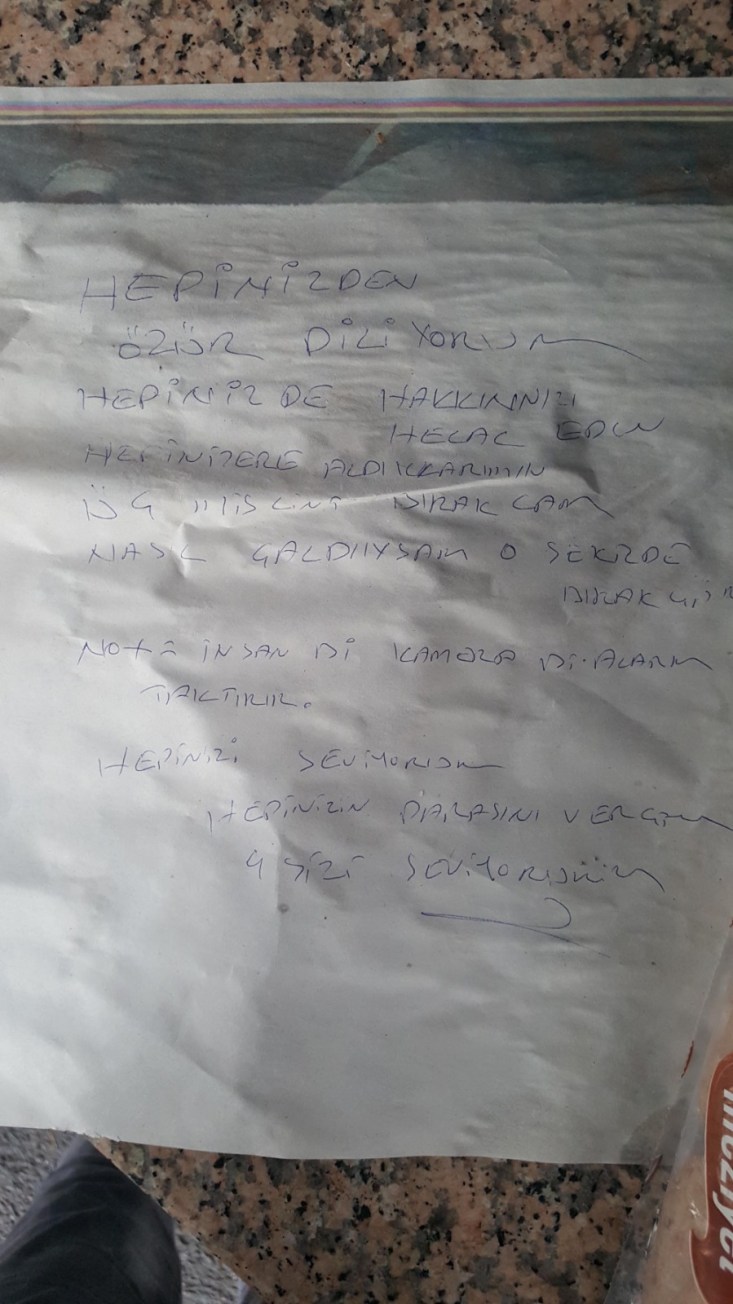 HEPİNİZDEN
ÖZÜR DİLİYORUM
HEPİNİZDE HAKKINNIZI
HELAL EDİN
HEPİNİZERE ALDIKLARIMIN
ÜÇ MİSLİNİ BIRAKCAM
NASL ÇALDIIYSAM O ŞEKİLDE
NOT = İNSAN Bİ KAMERA Bİ ALARM
TAKTIRIR.
HEPİNİZİ SEVİYORUM
HEPİNİZİN PARASINI VERCEM
SİZİ SEVİYORUM
meziyet